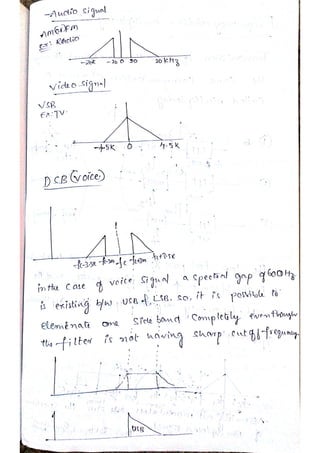 -Audio Signal
AM & FM
Ex: Radio
-20K -20 0 20 20KHz
Video Signal
VSB
Ex: TV
-4.5K 0 4.5K
DSB (Voice)
in the case of voice signal, a spectral gap of 600Hz
is existing b/w USB & LSB. so, it is possible to
elemenate one side band completely eventhough
the filter is not having sharp cutoff-frequency
USB